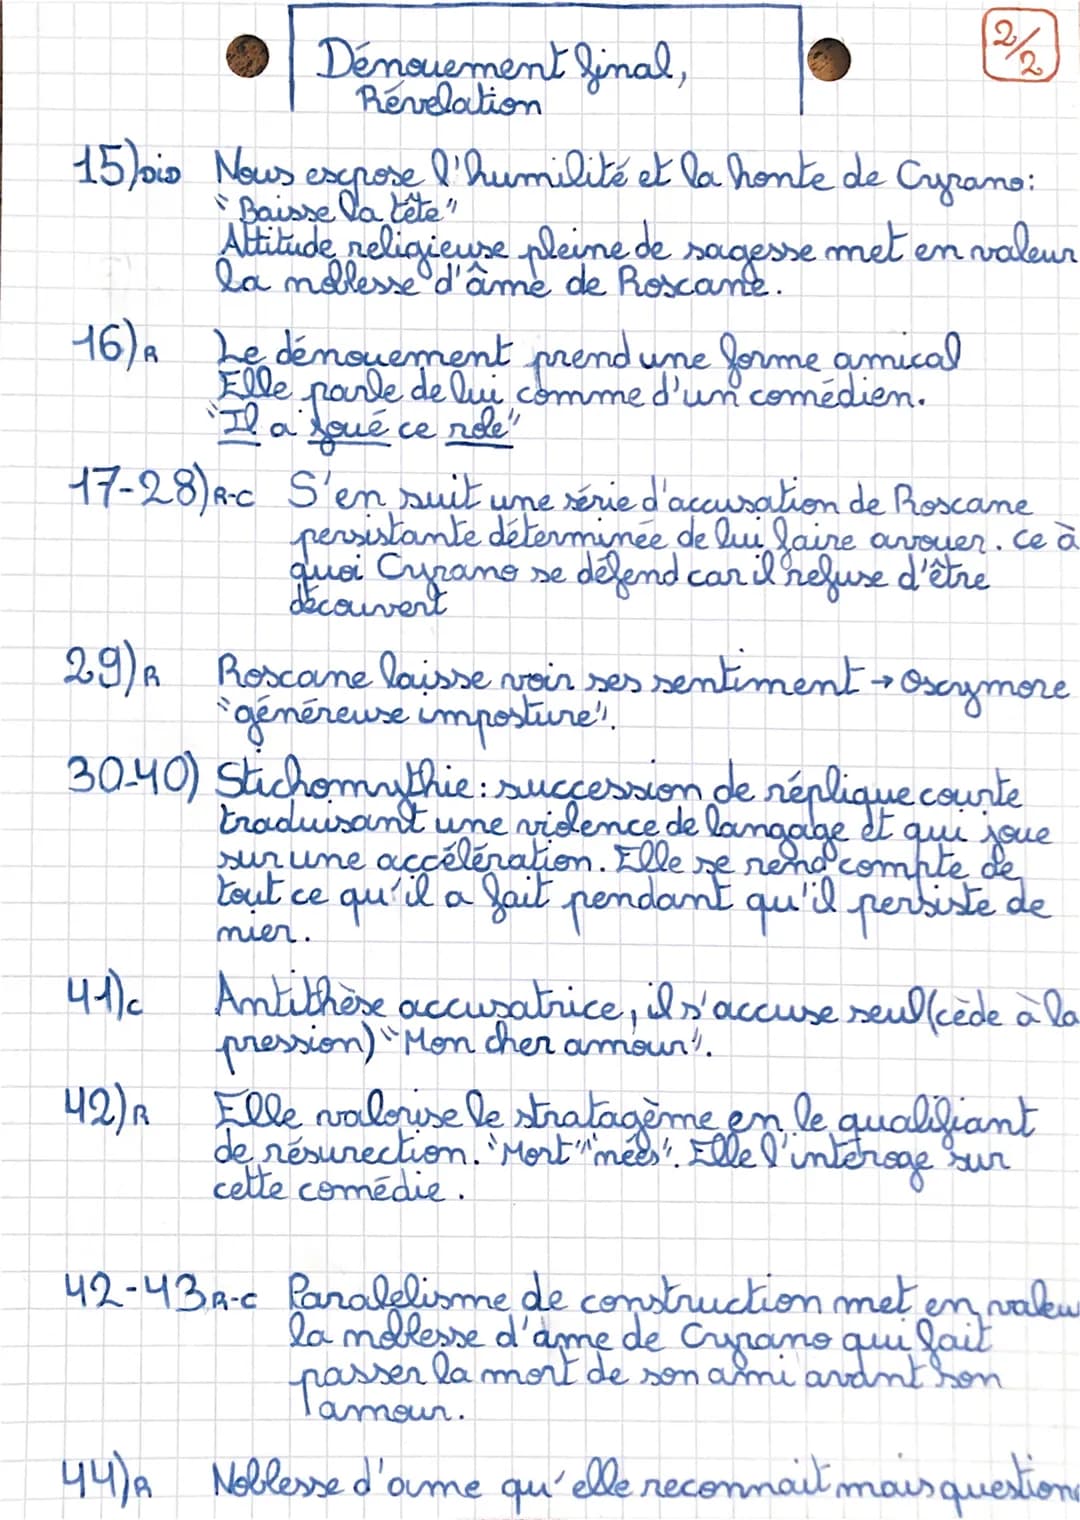 Dénouement final,
Révelation
2/2
15) DID Nous expose l'humilité et la honte de Cyrano:
"Baisse la tête"
Attitude religieuse pleine de sagesse met en valeur
la noblesse d'âme de Roxane.
16) R Le dénouement prend une forme amical
Elle parle de lui comme d'un comédien.
"Il a joué ce role"
17-28) R-C S'en suit une série d'accusation de Roxane
persistante déterminée de lui faire avouer. Ce à
quoi Cyrano se défend car il refuse d'être
découvert
29) R Roxane laisse voir ses sentiment → Oxymore
"généreuse imposture".
30-40) Stichomythie: succession de réplique courte
traduisant une violence de langage et qui joue
sur une accélération. Elle se rend compte de
tout ce qu'il a fait pendant qu'il persiste de
nier.
41) C Antithèse accusatrice, il s'accuse seul (cède à la
pression) "Mon cher amour".
42) R Elle valorise le stratagème en le qualifiant
de résurection. "Mort" "nées". Elle l'interoge sur
cette comédie.
42-43 R-C Paralelisme de construction met en valeu
la noblesse d'âme de Cyrano qui fait
passer la mort de son ami avant son
amour.
44) R Noblesse d'ame qu'elle reconnait mais question